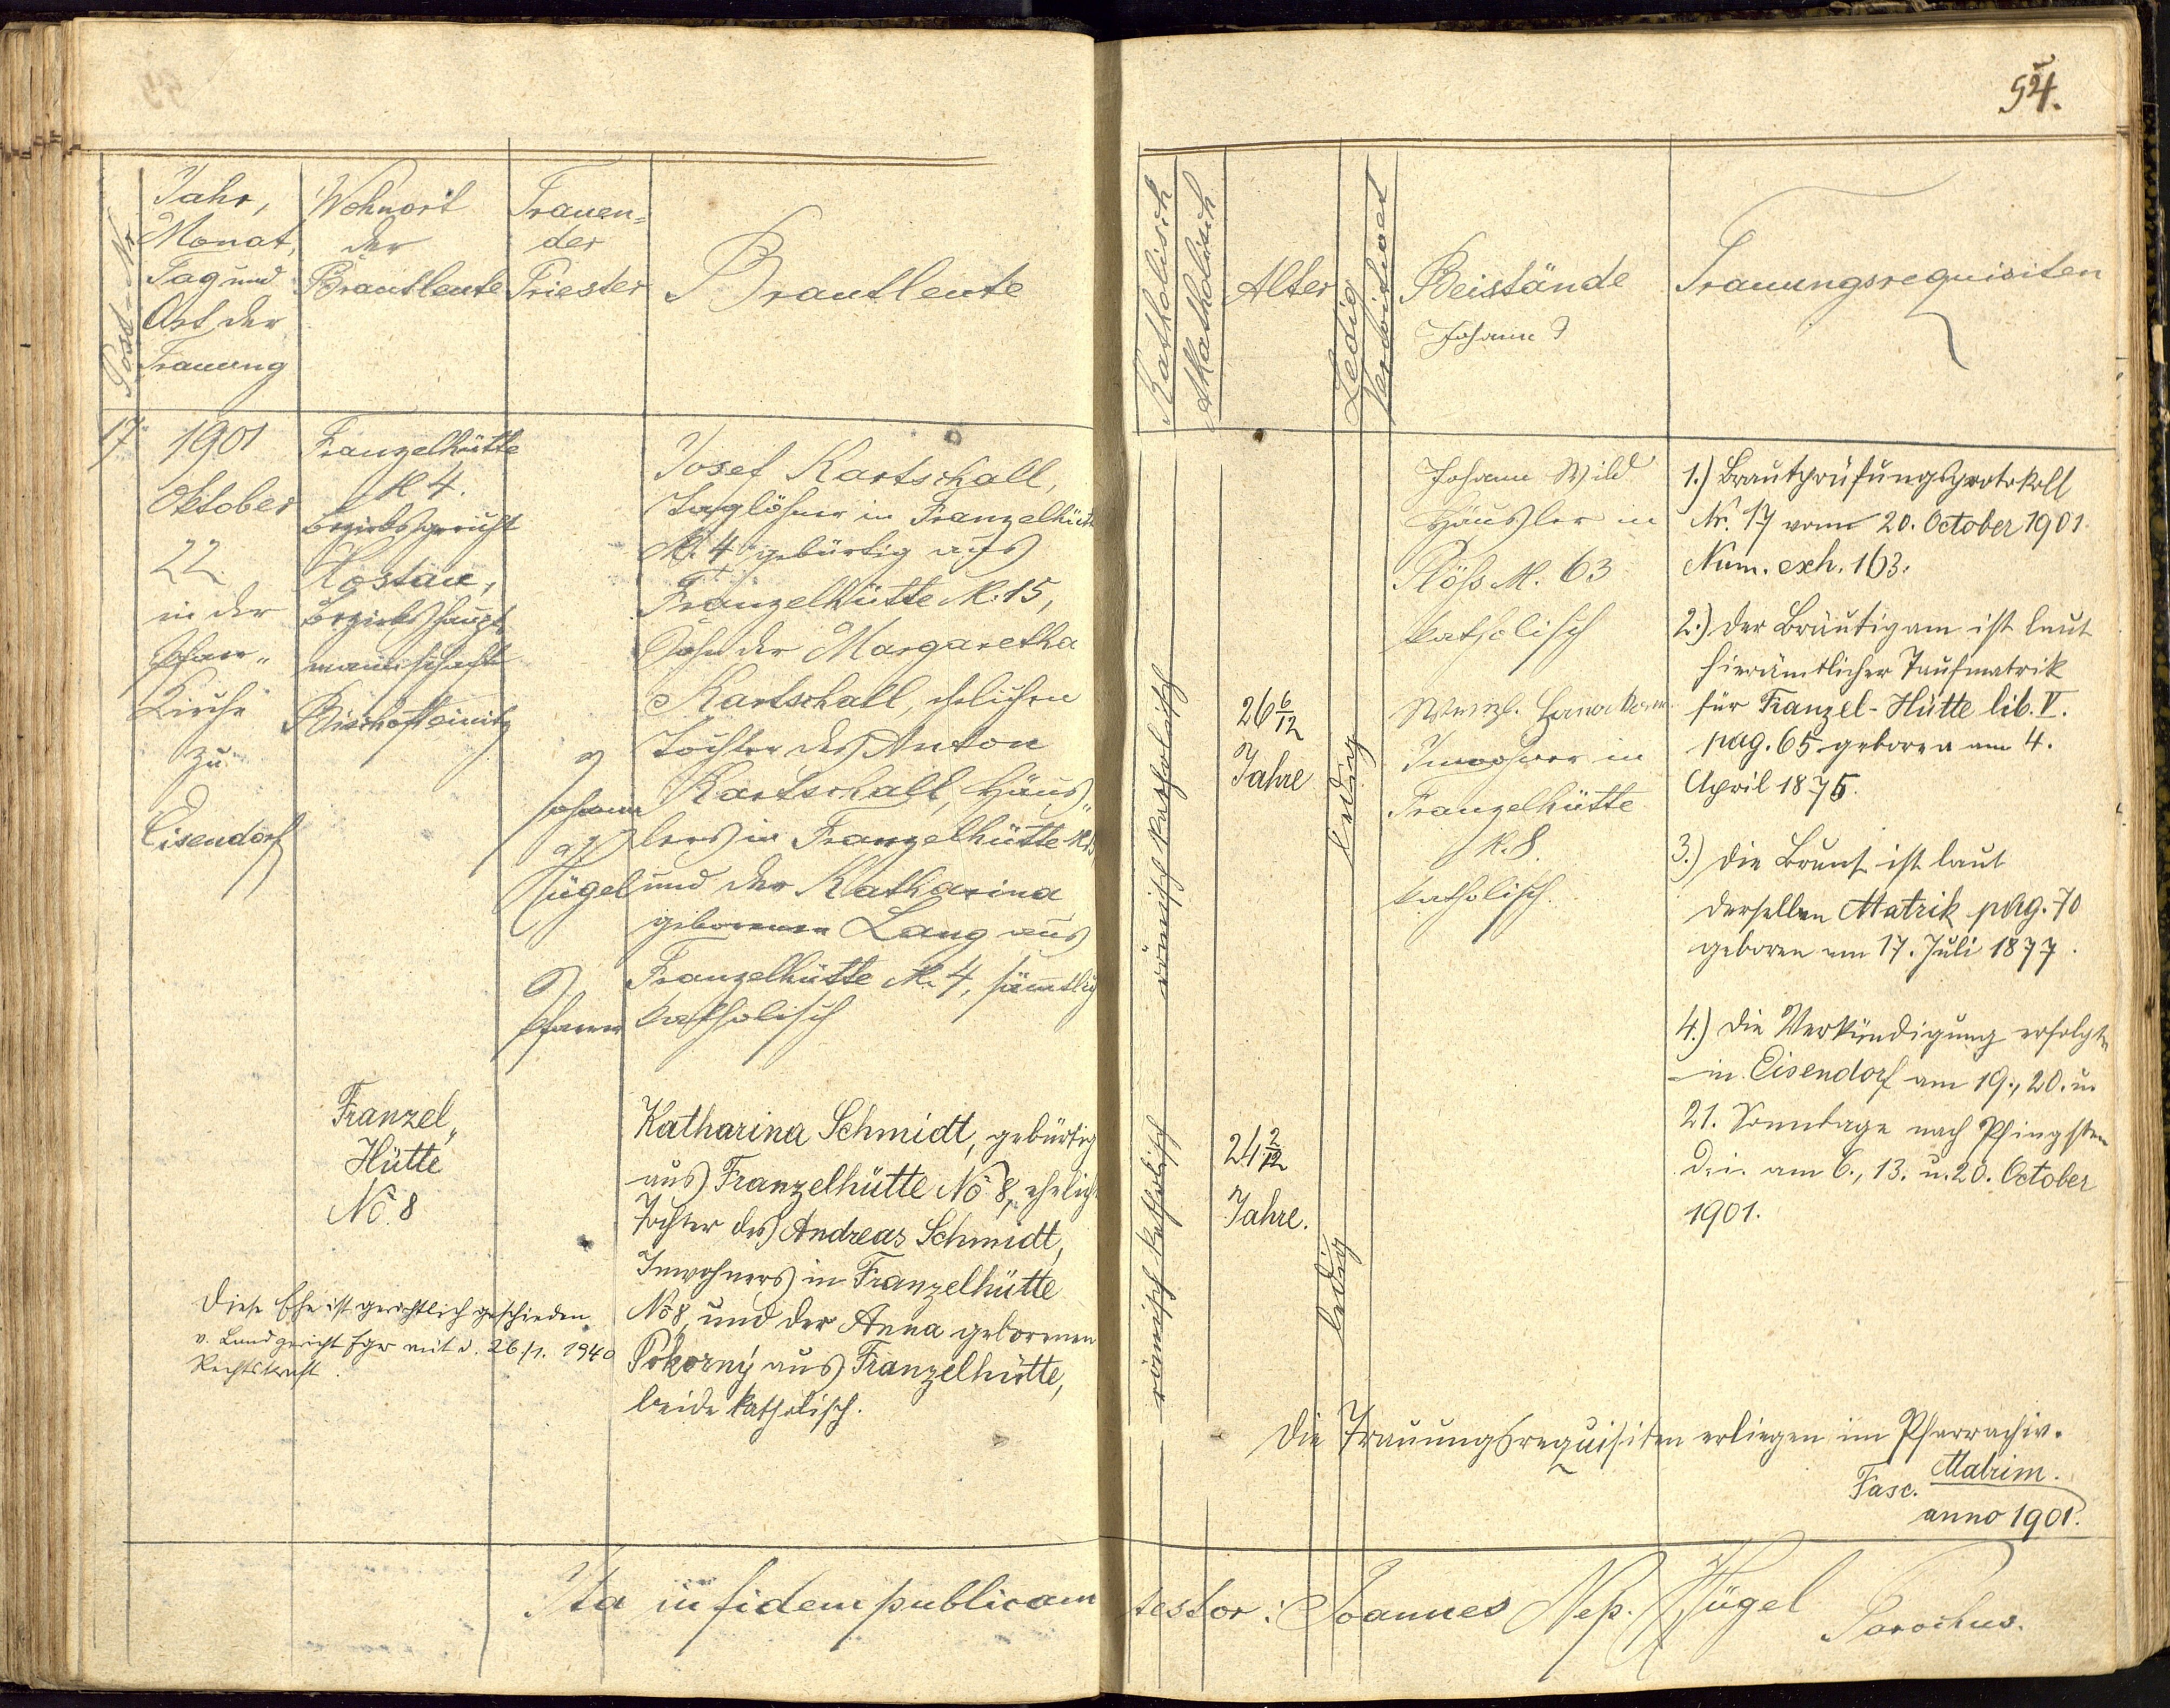 54.
Post-Nr.
Jahr,
Monat,
Tag und
Ort der
Trauung
Wohnort
der
Brautleute
Trauen-
der
Priester
Brautleute
Katholisch
Akatholisch
Alter
Ledig
Verwitwet
Beistände
Johann
Trauungsrequisiten
17
1901
Oktober
22.
in der
Pfarr-
Kirche
zu
Eisendorf
Franzelhütte
N. 4.
Bezirksgericht
Hostau,
Bezirkshaupt-
mannschaft
Bischofteinitz
Johann
Hügel
Pfarrer
Josef Kartschall,
Taglöhner in Franzelhütte
N. 4 gebürtig aus
Franzelhütte N. 15,
Sohn der Margaretha
Kartschall, ehelichen
Tochter des Anton
Kartschall, Häus-
lers in Franzelhütte N. 15
und der Katharina
geborenen Lang aus
Franzelhütte N. 4, sämtlich
katholisch
römisch katholisch
26 6/12
Jahre
ledig
Johann Wild
Häusler in
Plöß N. 63
katholisch
Wenzl.
Inwohner in
Franzelhütte
N. 8.
katholisch.
1.) Brautprüfungsprotokoll
Nr. 17 vom 20. October 1901.
Num. exh. 163.
2.) Der Bräutigam ist laut
hierämtlicher Taufmatrik
für Franzel-Hütte lib. V.
pag. 65 geboren am 4.
April 1875.
3.) Die Braut ist laut
derselben Matrik pag. 70
geboren am 17. Juli 1877.
4.) Die Verkündigung erfolgte
in Eisendorf am 19., 20. u.
21. Sonntage nach Pfingsten
d. i. am 6., 13. u. 20. October
1901.
Franzel-
Hütte
No. 8
Katharina Schmidt, gebürtig
aus Franzelhütte No 8, eheliche
Tochter des Andreas Schmidt,
Inwohners in Franzelhütte
No 8, und der Anna geborenen
Pokorný aus Franzelhütte,
beide katholisch.
römisch katholisch
24 2/12
Jahre.
ledig
Diese Ehe ist gerichtlich geschieden
v. Landgericht Eger mit d. 26./1. 1940
Rechtskraft.
Die Trauungsrequisiten erliegen im Pfarrachiv.
Fasc. Matrim.
anno 1901.
Ita in fidem publicam testor: Joannes Nep. Hügel
Parochus.